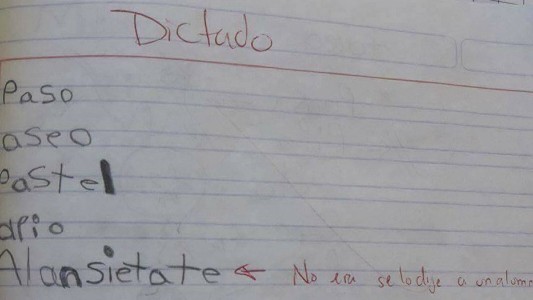 Dictado
Paso
aseo
Pastel
apio
Alansietate ← No era se lo dije a un alumn